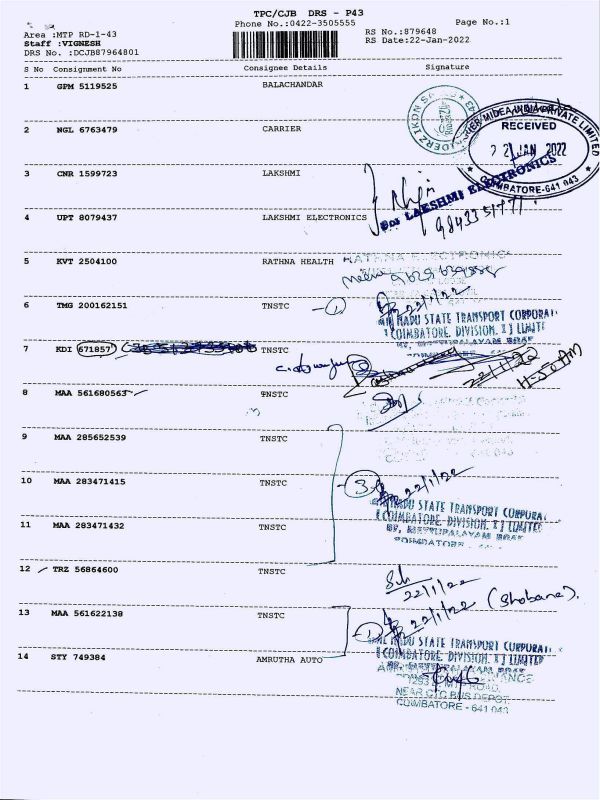 TPC/CJB DRS - P43
Phone No.:0422-3505555
Page No.:1
Area :MTP RD-1-43
Staff :VIGNESH
DRS No. :DCJB87964801
RS No.:879648
RS Date:22-Jan-2022
S No Consignment No Consignee Details Signature
1 GPM 5119525 BALACHANDAR
RECEIVED
22 JAN 2022
COIMBATORE-641 043
2 NGL 6763479 CARRIER
3 CNR 1599723 LAKSHMI
For LAKSHMI ELECTRONICS
4 UPT 8079437 LAKSHMI ELECTRONICS
5 KVT 2504100 RATHNA HEALTH
RATHNA ELECTRONIC
6 TMG 200162151 TNSTC
1 22/1/22
NADU STATE TRANSPORT CORPORAT
COIMBATORE, DIVISION, I LIMITE
7 KDI 671857 TNSTC
22/1/22
8 MAA 561680563 TNSTC
9 MAA 285652539 TNSTC
10 MAA 283471415 TNSTC
3 22/1/22
NADU STATE TRANSPORT CORPORA
COIMBATORE, DIVISION, I LIMITED
11 MAA 283471432 TNSTC
BR, METTUPALAYAM
COIMBATORE
12 TRZ 56864600 TNSTC
22/1/22 (Shobana).
13 MAA 561622138 TNSTC
1 22/1/22
NADU STATE TRANSPORT CORPORAT
COIMBATORE, DIVISION, I LIMITED
14 STY 749384 AMRUTHA AUTO
ROAD,
NEAR CTC BUS DEPOT,
COIMBATORE - 641 043